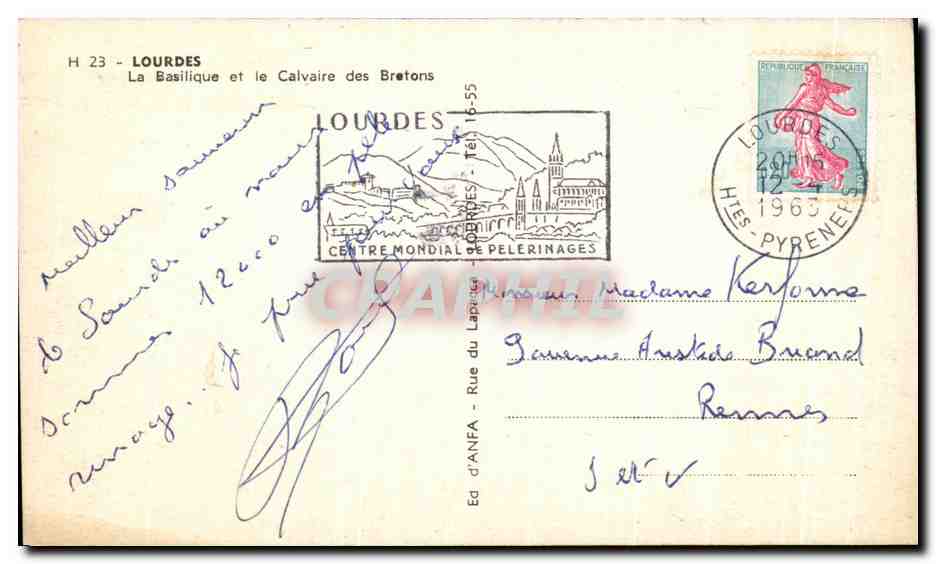 H 23 - LOURDES
La Basilique et le Calvaire des Bretons
Meilleur souvenir
de Lourdes où nous
sommes 12000 en pèle
rinage.. Je prie pour vous
LOURDES
CENTRE MONDIAL DE PELERINAGES
REPUBLIQUE FRANÇAISE
LOURDES
12 - 4
1963
HTES-PYRENEES
Ed d'ANFA - Rue du Lapacca - LOURDES - Tél. 16-55
CRAPHIL
Monsieur Madame Kerforne
9 avenue Aristide Briand
Rennes
I et V